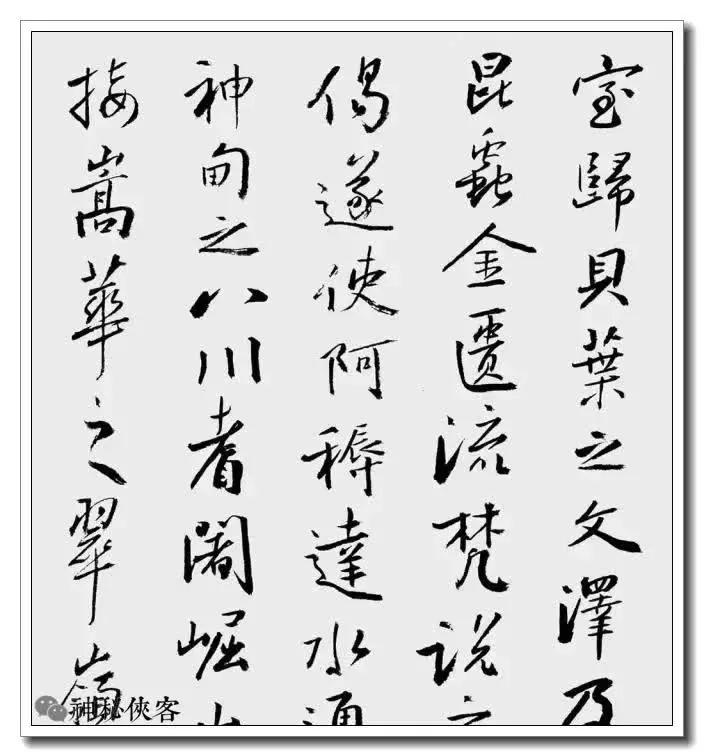 室歸貝葉之文澤及
昆蟲金匱流梵說之
偈遂使阿耨達水通
神甸之八川耆闍崛山
接嵩華之翠嶺
神秘俠客